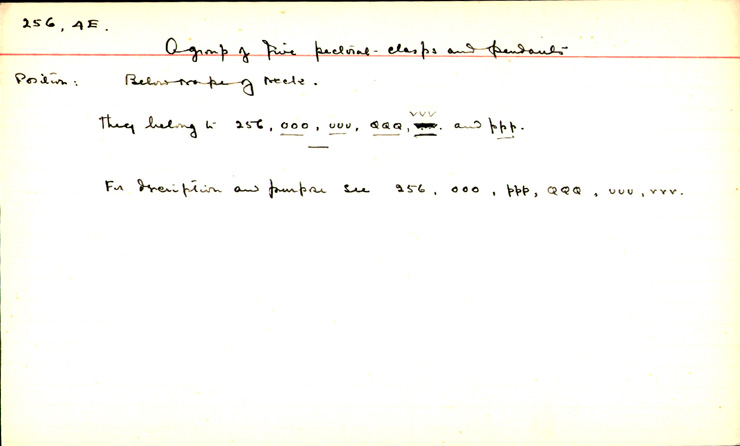 256, 4E.
A group of five pectoral-clasps and pendants
Position: Below nape of neck.
They belong to 256, ooo, uuu, QQQ, vvv. and ppp.
For description and purpose see 256, ooo, ppp, QQQ, uuu, vvv.